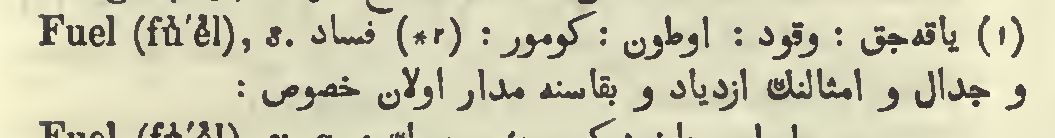 Fuel (fū´ĕl), s. (١) یاقه‌جق : وقود : اوطون : كومور : (*٢) فساد
و جدال و امثالنك ازدیاد و بقاسنه مدار اولان خصوص :